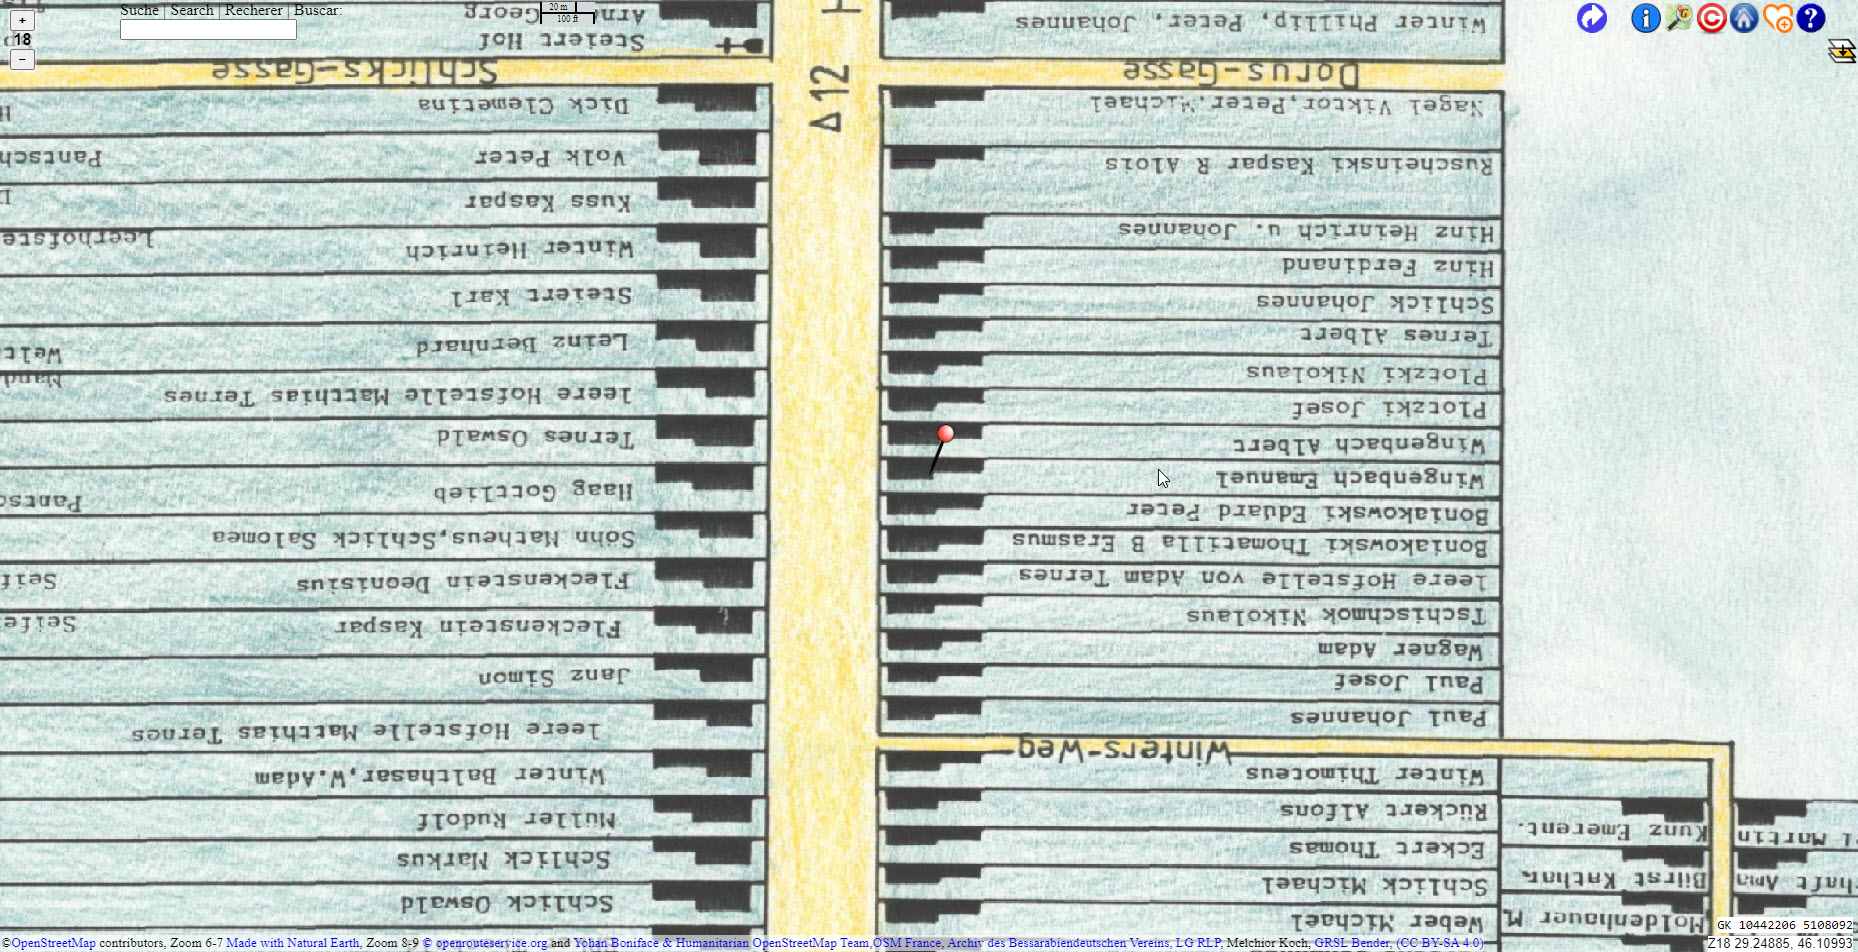 Suche | Search | Recherer | Buscar:
+
18
−
20 m
100 ft
Georg
Steiert Hof
Schlicks-Gasse
Dick Clemetina
Volk Peter
Kuss Kaspar
Winter Heinrich
Steiert Karl
Leinz Bernhard
leere Hofstelle Matthias Ternes
Ternes Oswald
Haag Gottlieb
Söhn Matheus,Schlick Salomea
Fleckenstein Deonisius
Fleckenstein Kaspar
Janz Simon
leere Hofstelle Matthias Ternes
Winter Balthasar,W.Adam
Muller Rudolf
Schlick Markus
Schlick Oswald
Δ 12
Winter Phillip, Peter, Johannes
Dorus-Gasse
Nagel Viktor,Peter,Michael
Ruscheinski Kaspar R Alois
Hinz Heinrich u. Johannes
Hinz Ferdinand
Schlick Johannes
Ternes Albert
Plotzki Nikolaus
Plotzki Josef
Wingenbach Albert
Wingenbach Emanuel
Boniakowski Eduard Peter
Boniakowski Thomatilla B Erasmus
leere Hofstelle von Adam Ternes
Tschischmok Nikolaus
Wagner Adam
Paul Josef
Paul Johannes
Winters-Weg
Winter Thimoteus
Rückert Alfons
Eckert Thomas
Schlick Michael
Weber Michael
Kunz Emerent.
Martin
Moldenhauer M
GK 10442206 5108092
©OpenStreetMap contributors, Zoom 6-7 Made with Natural Earth, Zoom 8-9 © openrouteservice.org and Yohan Boniface & Humanitarian OpenStreetMap Team,OSM France, Archiv des Bessarabiendeutschen Vereins, LG RLP, Melchior Koch, GRSL Bender, (CC BY-SA 4.0)
Z18 29.24885, 46.10993